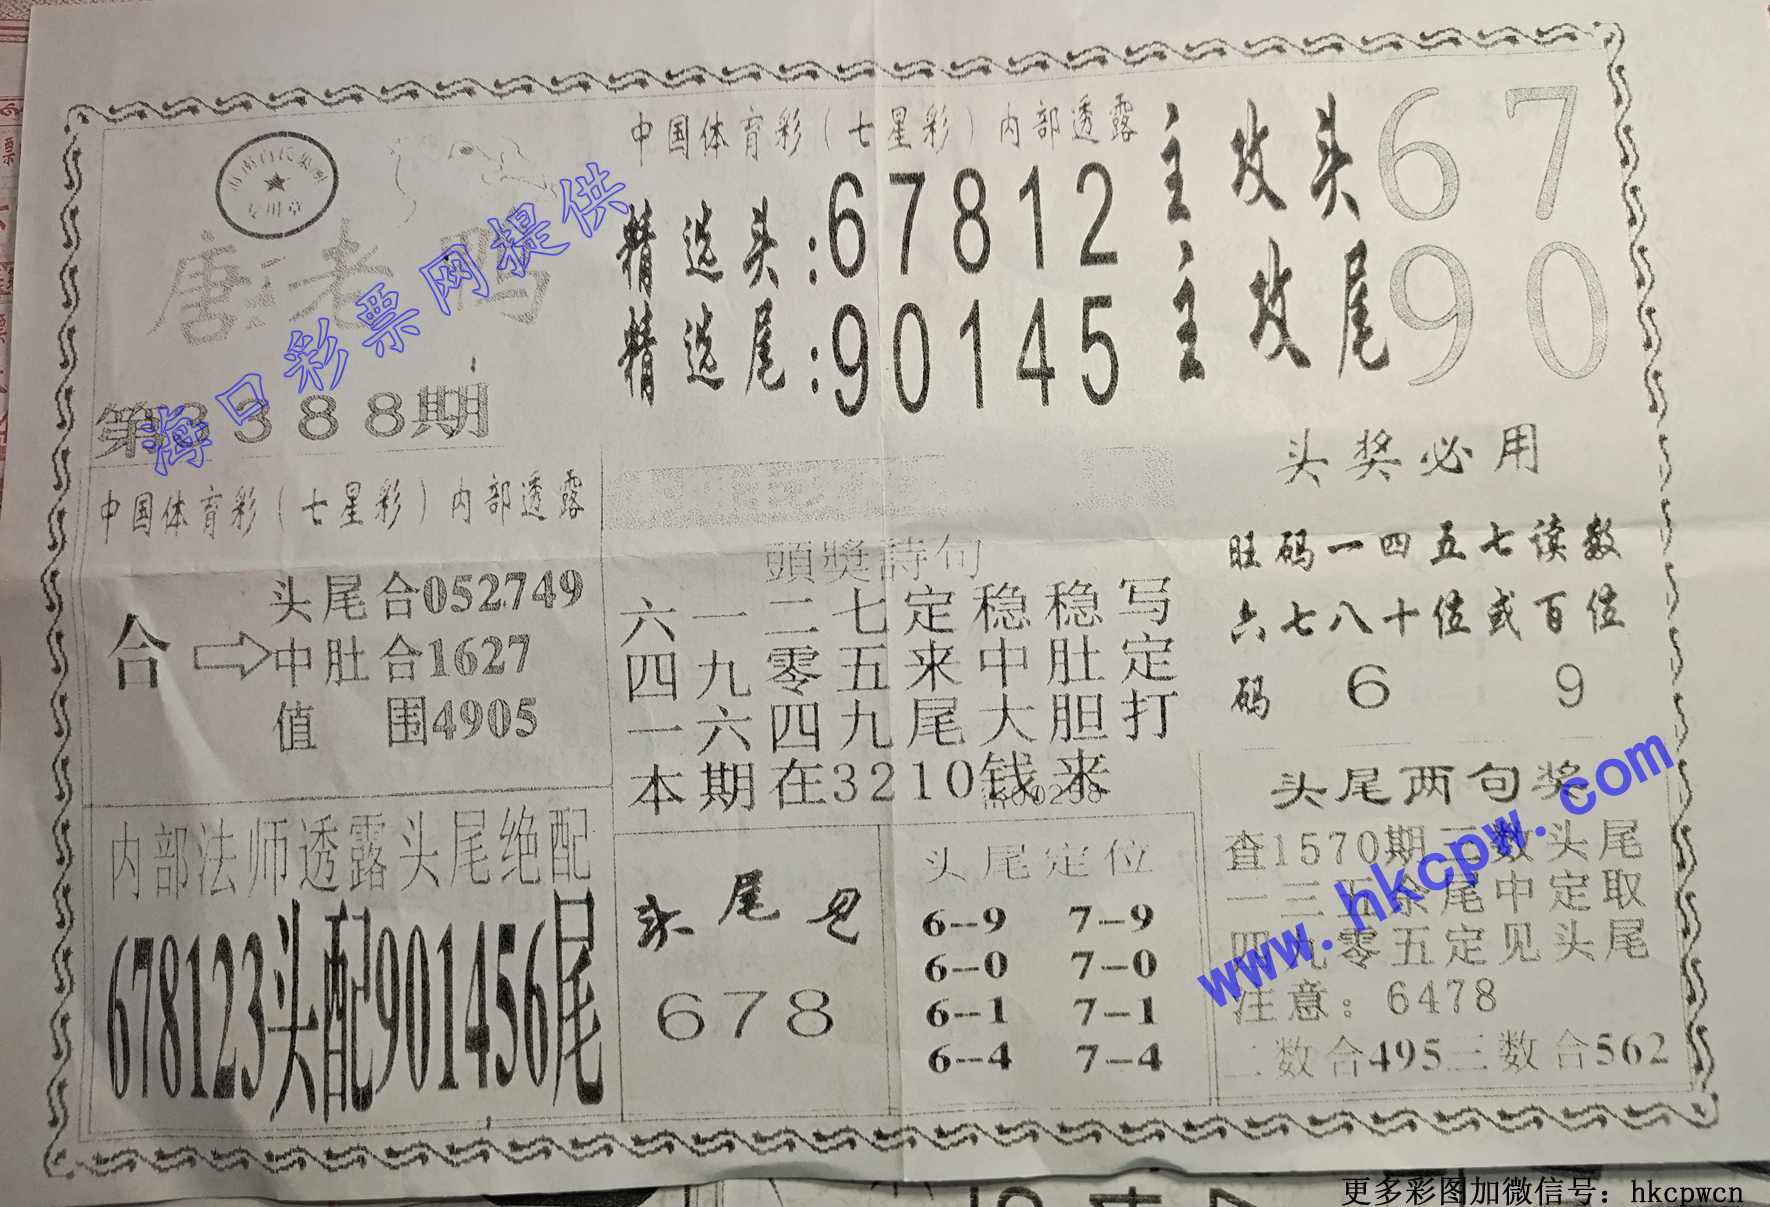 中国体育彩（七星彩）内部透露
主攻头 67
精选头:67812
主攻尾 90
精选尾:90145
专用章
唐老鸭
海口彩票网提供
388期
中国体育彩（七星彩）内部透露
合
头尾合052749
中肚合1627
值围4905
頭獎詩句
六一二七定稳稳写
四九零五来中肚定
一六四九尾大胆打
本期在3210钱来
头奖必用
旺码一四五七读数
六七八十位或百位
码 6 9
内部法师透露头尾绝配
678123头配901456尾
头尾见
678
头尾定位
6--9 7--9
6--0 7--0
6--1 7--1
6--4 7--4
头尾两句奖
查1570期二数头尾
一三五余尾中定取
四九零五定见头尾
注意：6478
二数合495三数合562
www.hkcpw.com
更多彩图加微信号：hkcpwcn